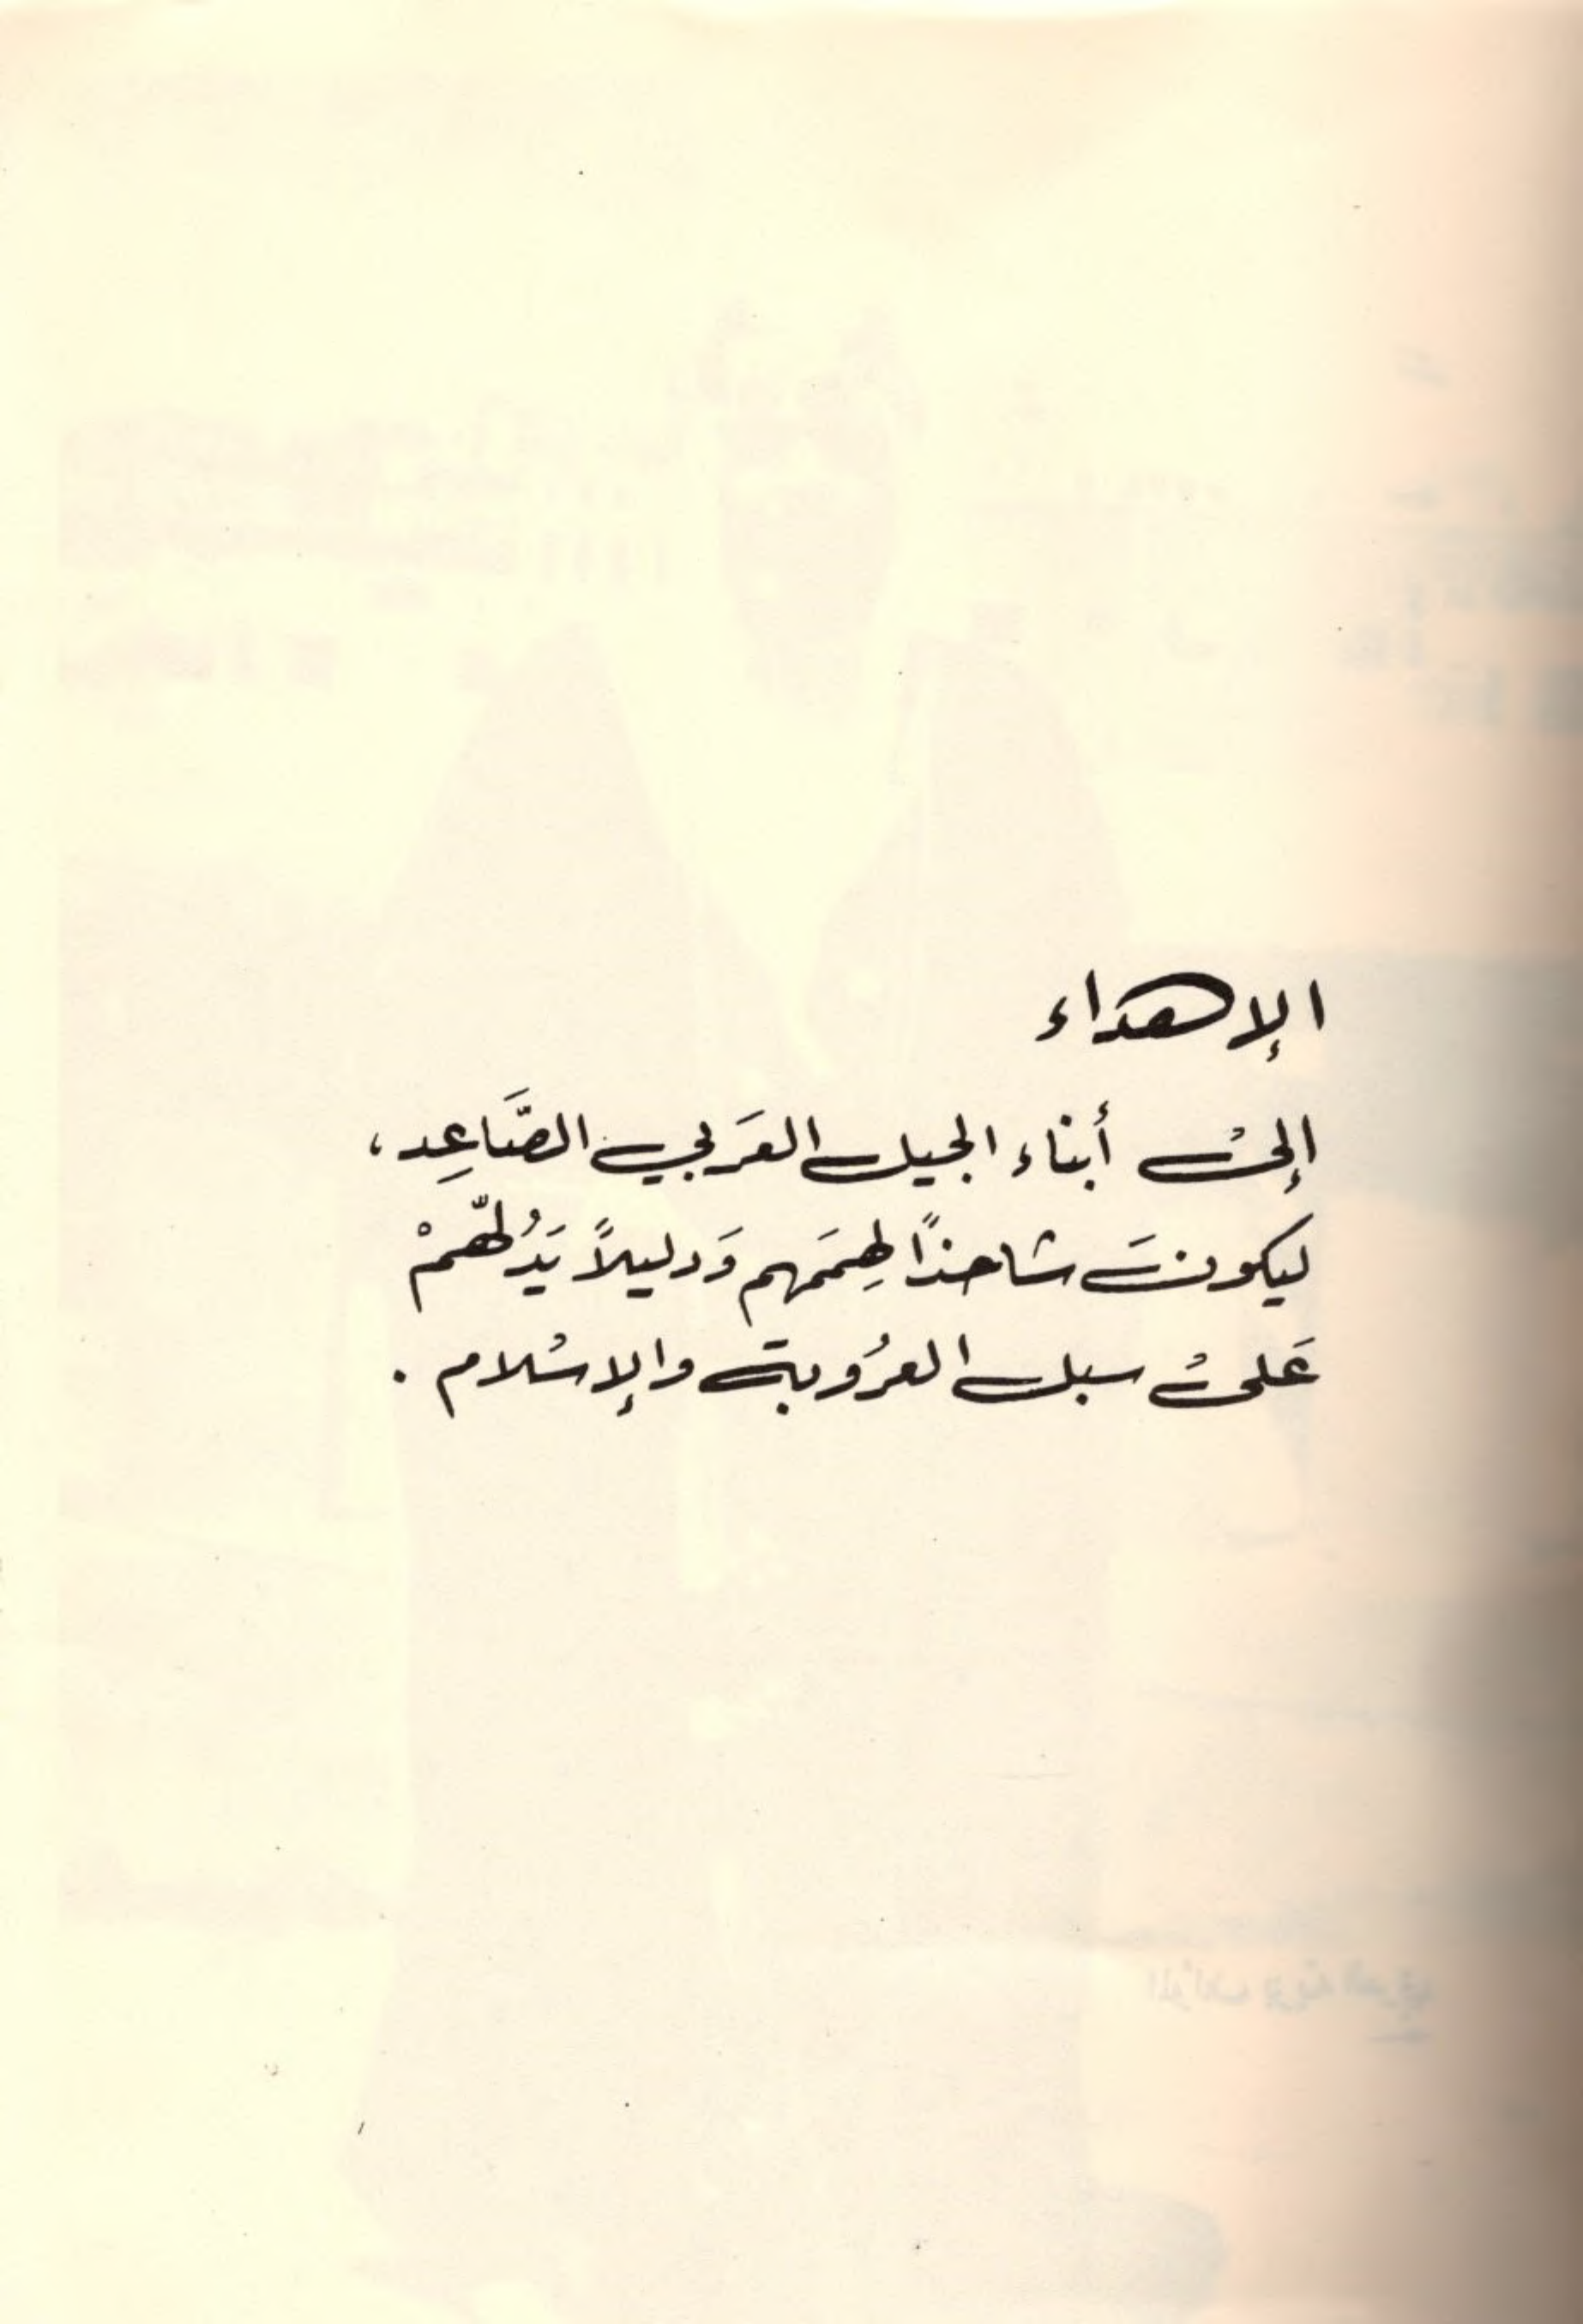 الإهداء
إلىْ أبناء الجيل العَربي الصَّاعِد،
ليكونَ شاحذًا لِهِمَمهم وَدليلاً يَدُلهّمْ
عَلىْ سبل العرُوبة والإسْلام .